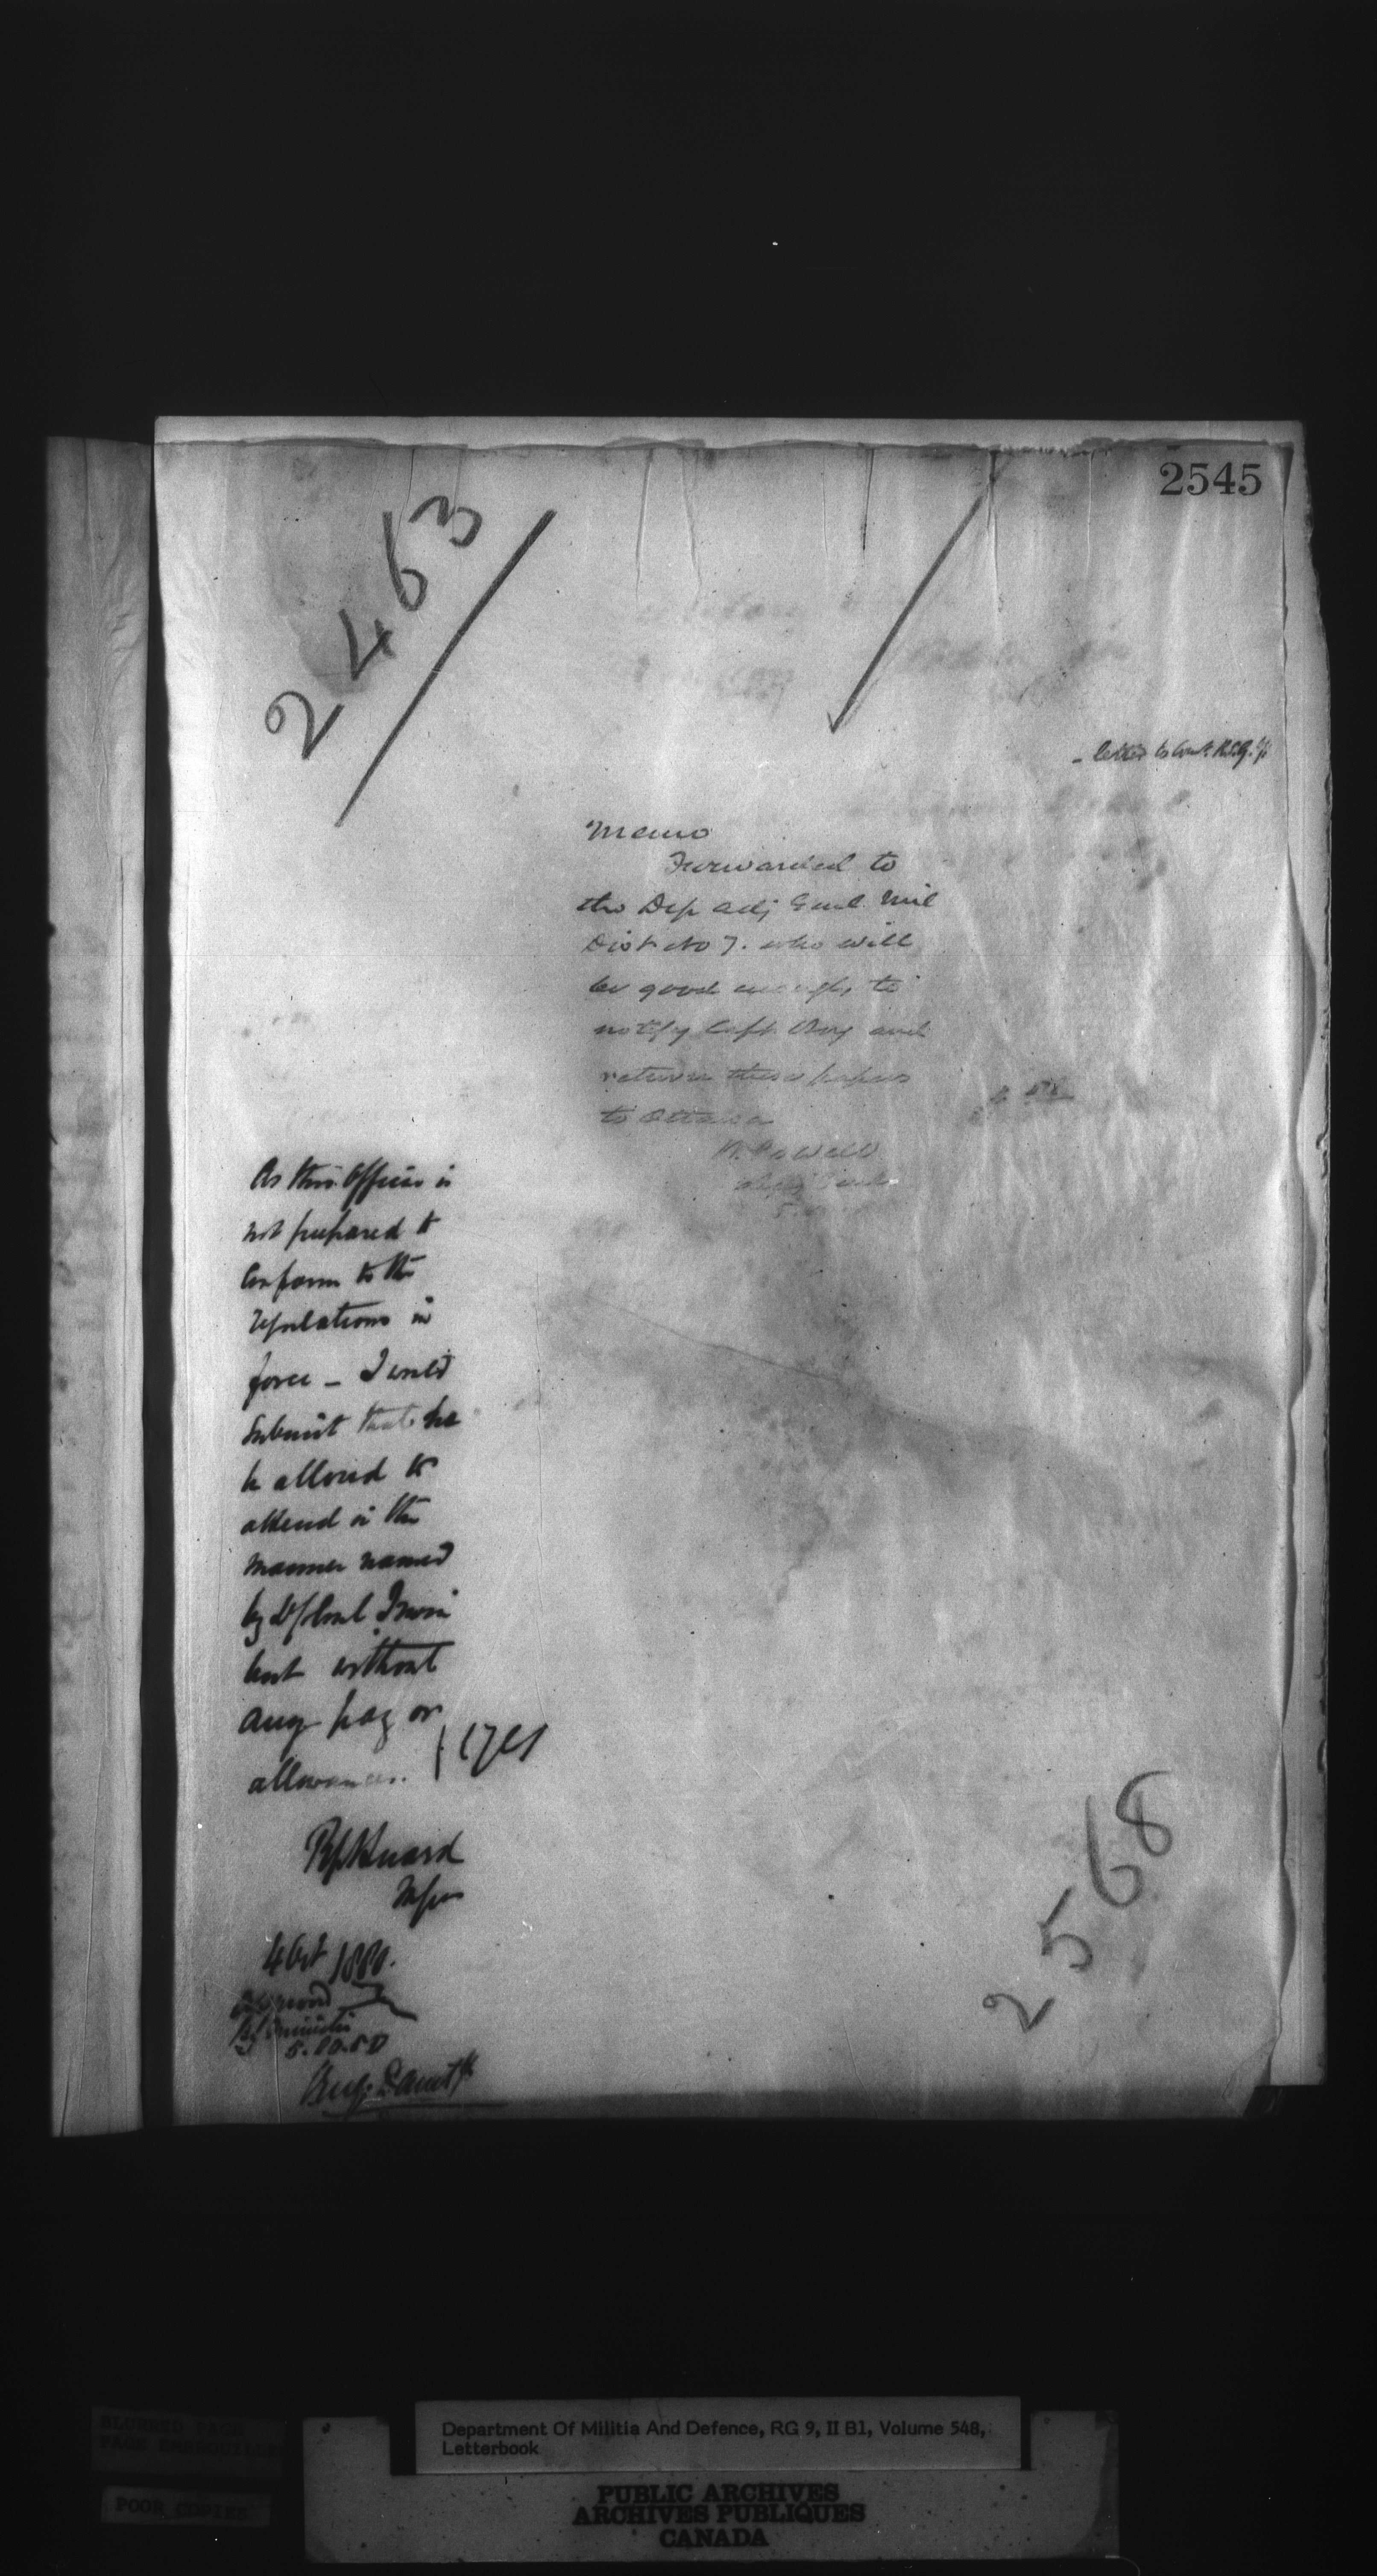 2545
2463
letter to Comt. R.S.G.
Memo
Forwarded to
the Dep adj Genl. Mil
Dist No 7. who will
be good enough to
notify Capt. Roy and
return these papers
to Ottawa
W. Powell
As this Officer is
not prepared to
Conform to the
regulations in
force – I would
submit that he
be allowed to
attend in the
manner named
by Lt Colonel Irwin
but without
any pay or
allowances.
4 Oct 1880.
by Minister
5.10.80
2568
Department Of Militia And Defence, RG 9, II B1, Volume 548,
Letterbook
BLURRED PAGE
POOR COPIES
PUBLIC ARCHIVES
ARCHIVES PUBLIQUES
CANADA